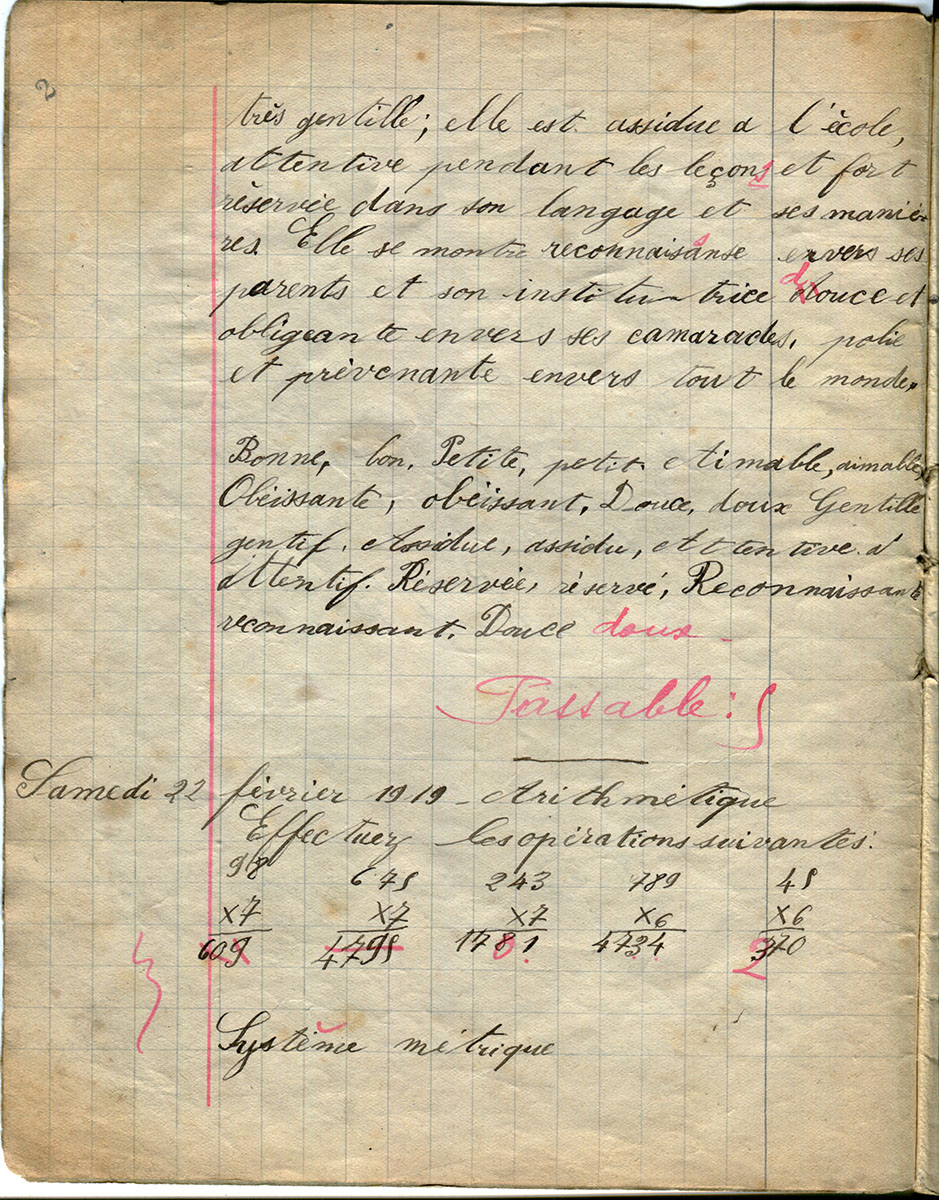 2
très gentille; elle est assidue a l'école,
attentive pendant les leçons et fort
réservée dans son langage et ses maniè-
res. Elle se montre reconnaissanse envers ses
parents et son institutrice douce et
obligeante envers ses camarades, polie
et prévenante envers tout le monde.
Bonne, bon. Petite, petit Aimable, aimable,
Obéissante, obéissant. Douce, doux Gentille
gentif. Assidue, assidu, Attentive. a
attentif. Réservée, réservé, Reconnaissante
reconnaissant. Douce doux
Passable:
Samedi 22 février 1919 - Arithmétique
Effectuez les opérations suivantes:
98 675 243 789 45
×7 ×7 ×7 ×6 ×6
609 4795 1781 4734 370
0 2
Système métrique